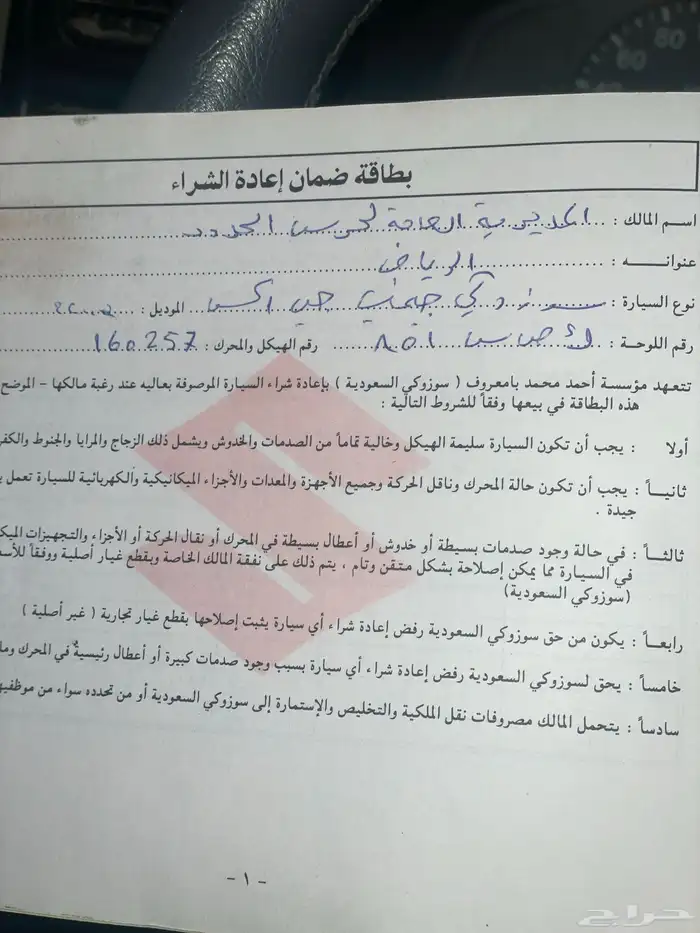 بطاقة ضمان إعادة الشراء
اسم المالك : المديرية العامة لحرس الحدود
عنوانه : الرياض
نوع السيارة : سوزوكي جمني جي اكس الموديل :
رقم اللوحة : ٨٥١ رقم الهيكل والمحرك : 160257
تتعهد مؤسسة أحمد محمد بامعروف ( سوزوكي السعودية ) بإعادة شراء السيارة الموصوفة بعاليه عند رغبة مالكها - الموضح
هذه البطاقة في بيعها وفقاً للشروط التالية :
أولا : يجب أن تكون السيارة سليمة الهيكل وخالية تماماً من الصدمات والخدوش ويشمل ذلك الزجاج والمرايا والجنوط والكفر
ثانيـاً : يجب أن تكون حالة المحرك وناقل الحركة وجميع الأجهزة والمعدات والأجزاء الميكانيكية والكهربائية للسيارة تعمل
جيدة .
ثالثـاً : في حالة وجود صدمات بسيطة أو خدوش أو أعطال بسيطة في المحرك أو نقال الحركة أو الأجزاء والتجهيزات الميك
في السيارة مما يمكن إصلاحة بشكل متقن وتام ، يتم ذلك على نفقة المالك الخاصة وبقطع غيار أصلية ووفقاً للأس
(سوزوكي السعودية)
رابعـاً : يكون من حق سوزوكي السعودية رفض إعادة شراء أي سيارة يثبت إصلاحها بقطع غيار تجارية ( غير أصلية )
خامساً : يحق لسوزوكي السعودية رفض إعادة شراء أي سيارة بسبب وجود صدمات كبيرة أو أعطال رئيسية في المحرك وما
سادساً : يتحمل المالك مصروفات نقل الملكية والتخليص والإستمارة إلى سوزوكي السعودية أو من تحدده سواء من موظفيه
- ١ -
حراج